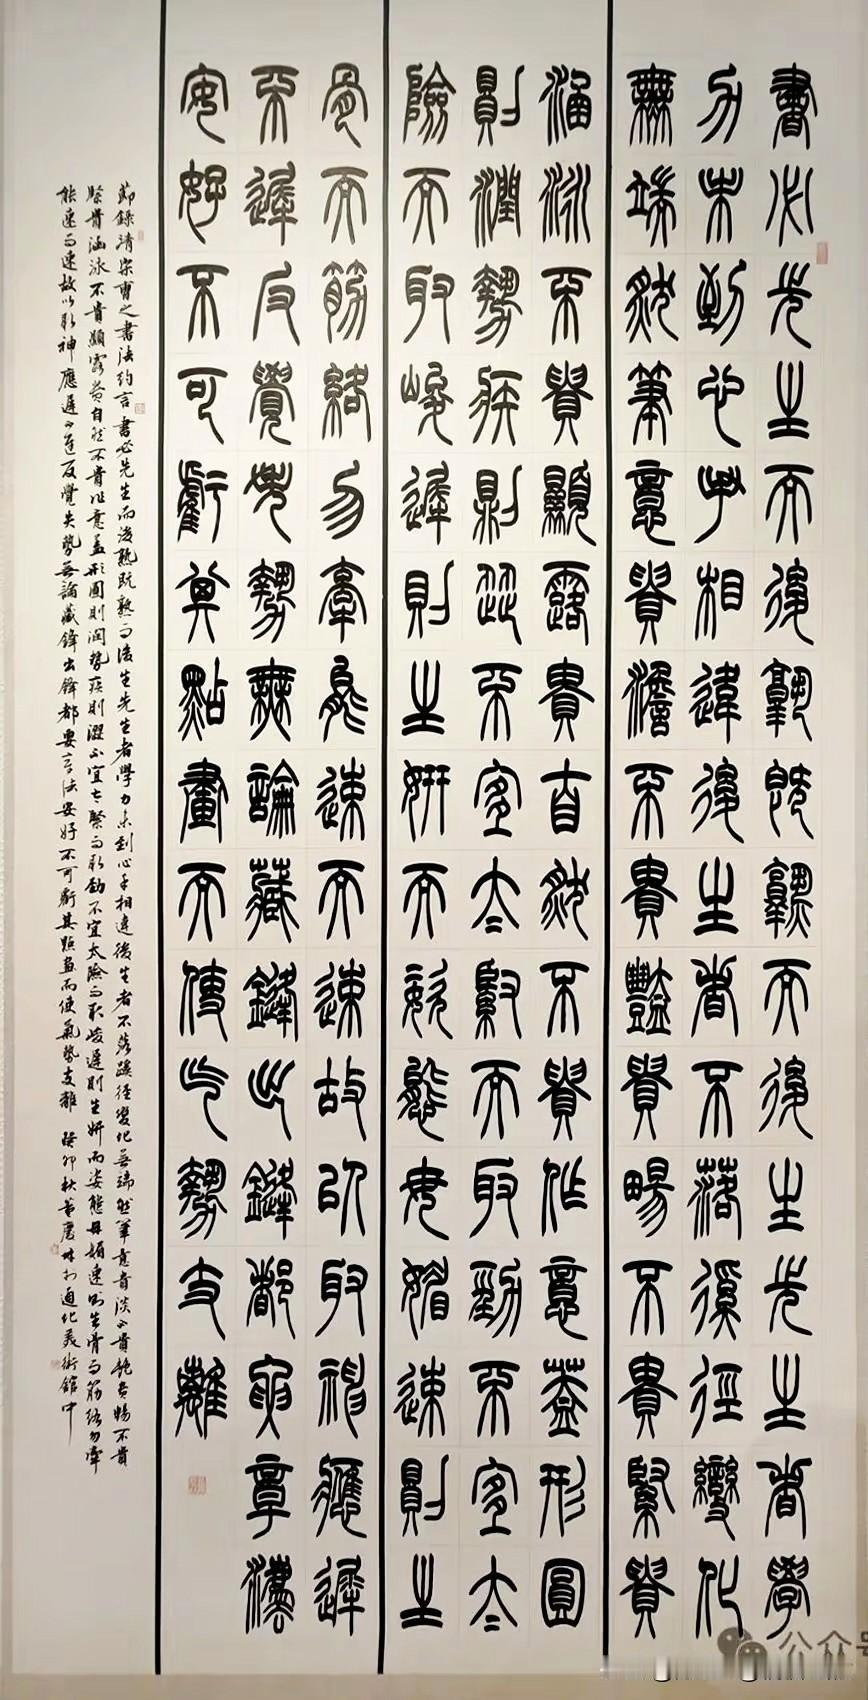 書必先生而後熟既熟而後生先生者學
力未到心手相違後生者不落蹊徑變化
無端然筆意貴澹不貴豔貴暢不貴緊貴
涵泳不貴顯露貴自然不貴作意蓋形圓
則潤勢疾則澀不宜太緊而取勁不宜太
險而取峻遲則生妍而姿態毋媚速則生
骨而筋絡勿牽能速而速故以取神應遲
不遲反覺失勢無論藏鋒出鋒都要章法
安好不可虧其點畫而使氣勢支離
節錄清宋曹之書法約言 書必先生而後熟既熟而後生先生者學力未到心手相違後生者不落蹊徑變化無端然筆意貴淡不貴艷貴暢不貴
緊貴涵泳不貴顯露貴自然不貴作意蓋形圓則潤勢疾則澀不宜太緊而取勁不宜太險而取峻遲則生妍而姿態毋媚速則生骨而筋絡勿牽
能速而速故以取神應遲不遲反覺失勢無論藏鋒出鋒都要章法安好不可虧其點畫而使氣勢支離 癸卯秋董慶林於通化美術館中
公众号